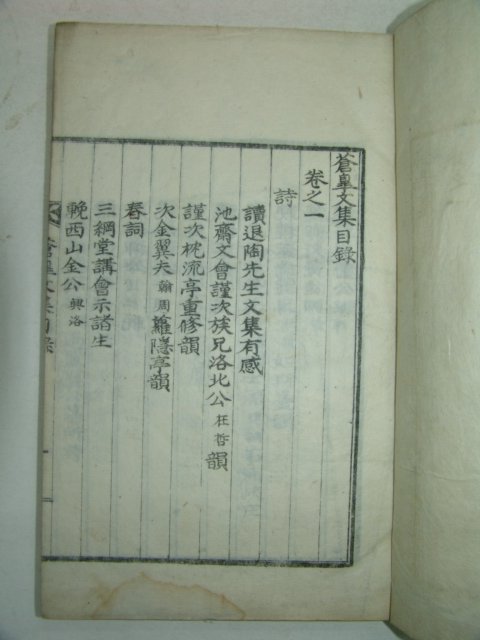 蒼皐文集目錄
卷之一
詩
讀退陶先生文集有感
池齋文會謹次族兄洛北公 在哲 韻
謹次枕流亭重修韻
次金翼夫 翰周 蘿隱亭韻
春詞
三綱堂講會示諸生
輓西山金公 興洛
蒼皐文集目錄